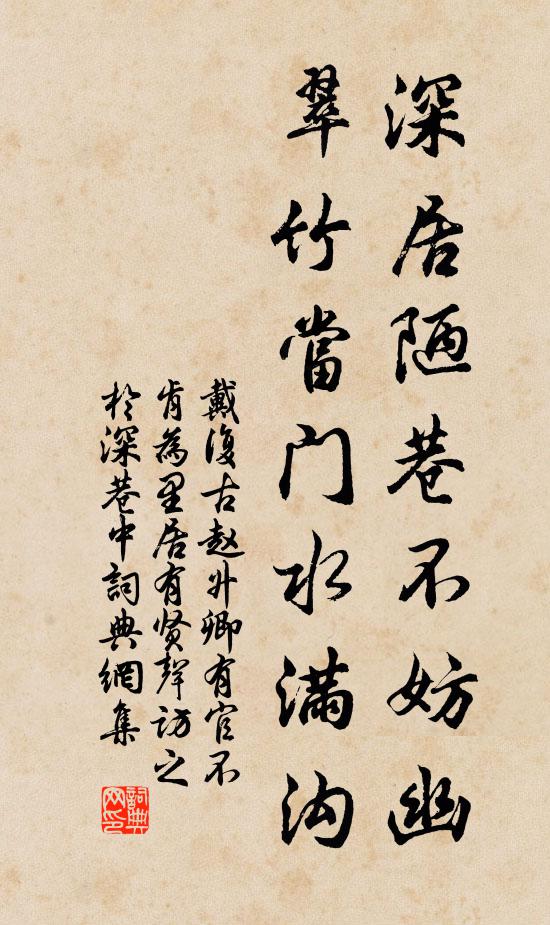 深居陋巷不妨幽
翠竹當门水满沟
戴復古赵升卿有官不
肯為里居有贤聲訪之
於深巷中詞典網集
詞典网印